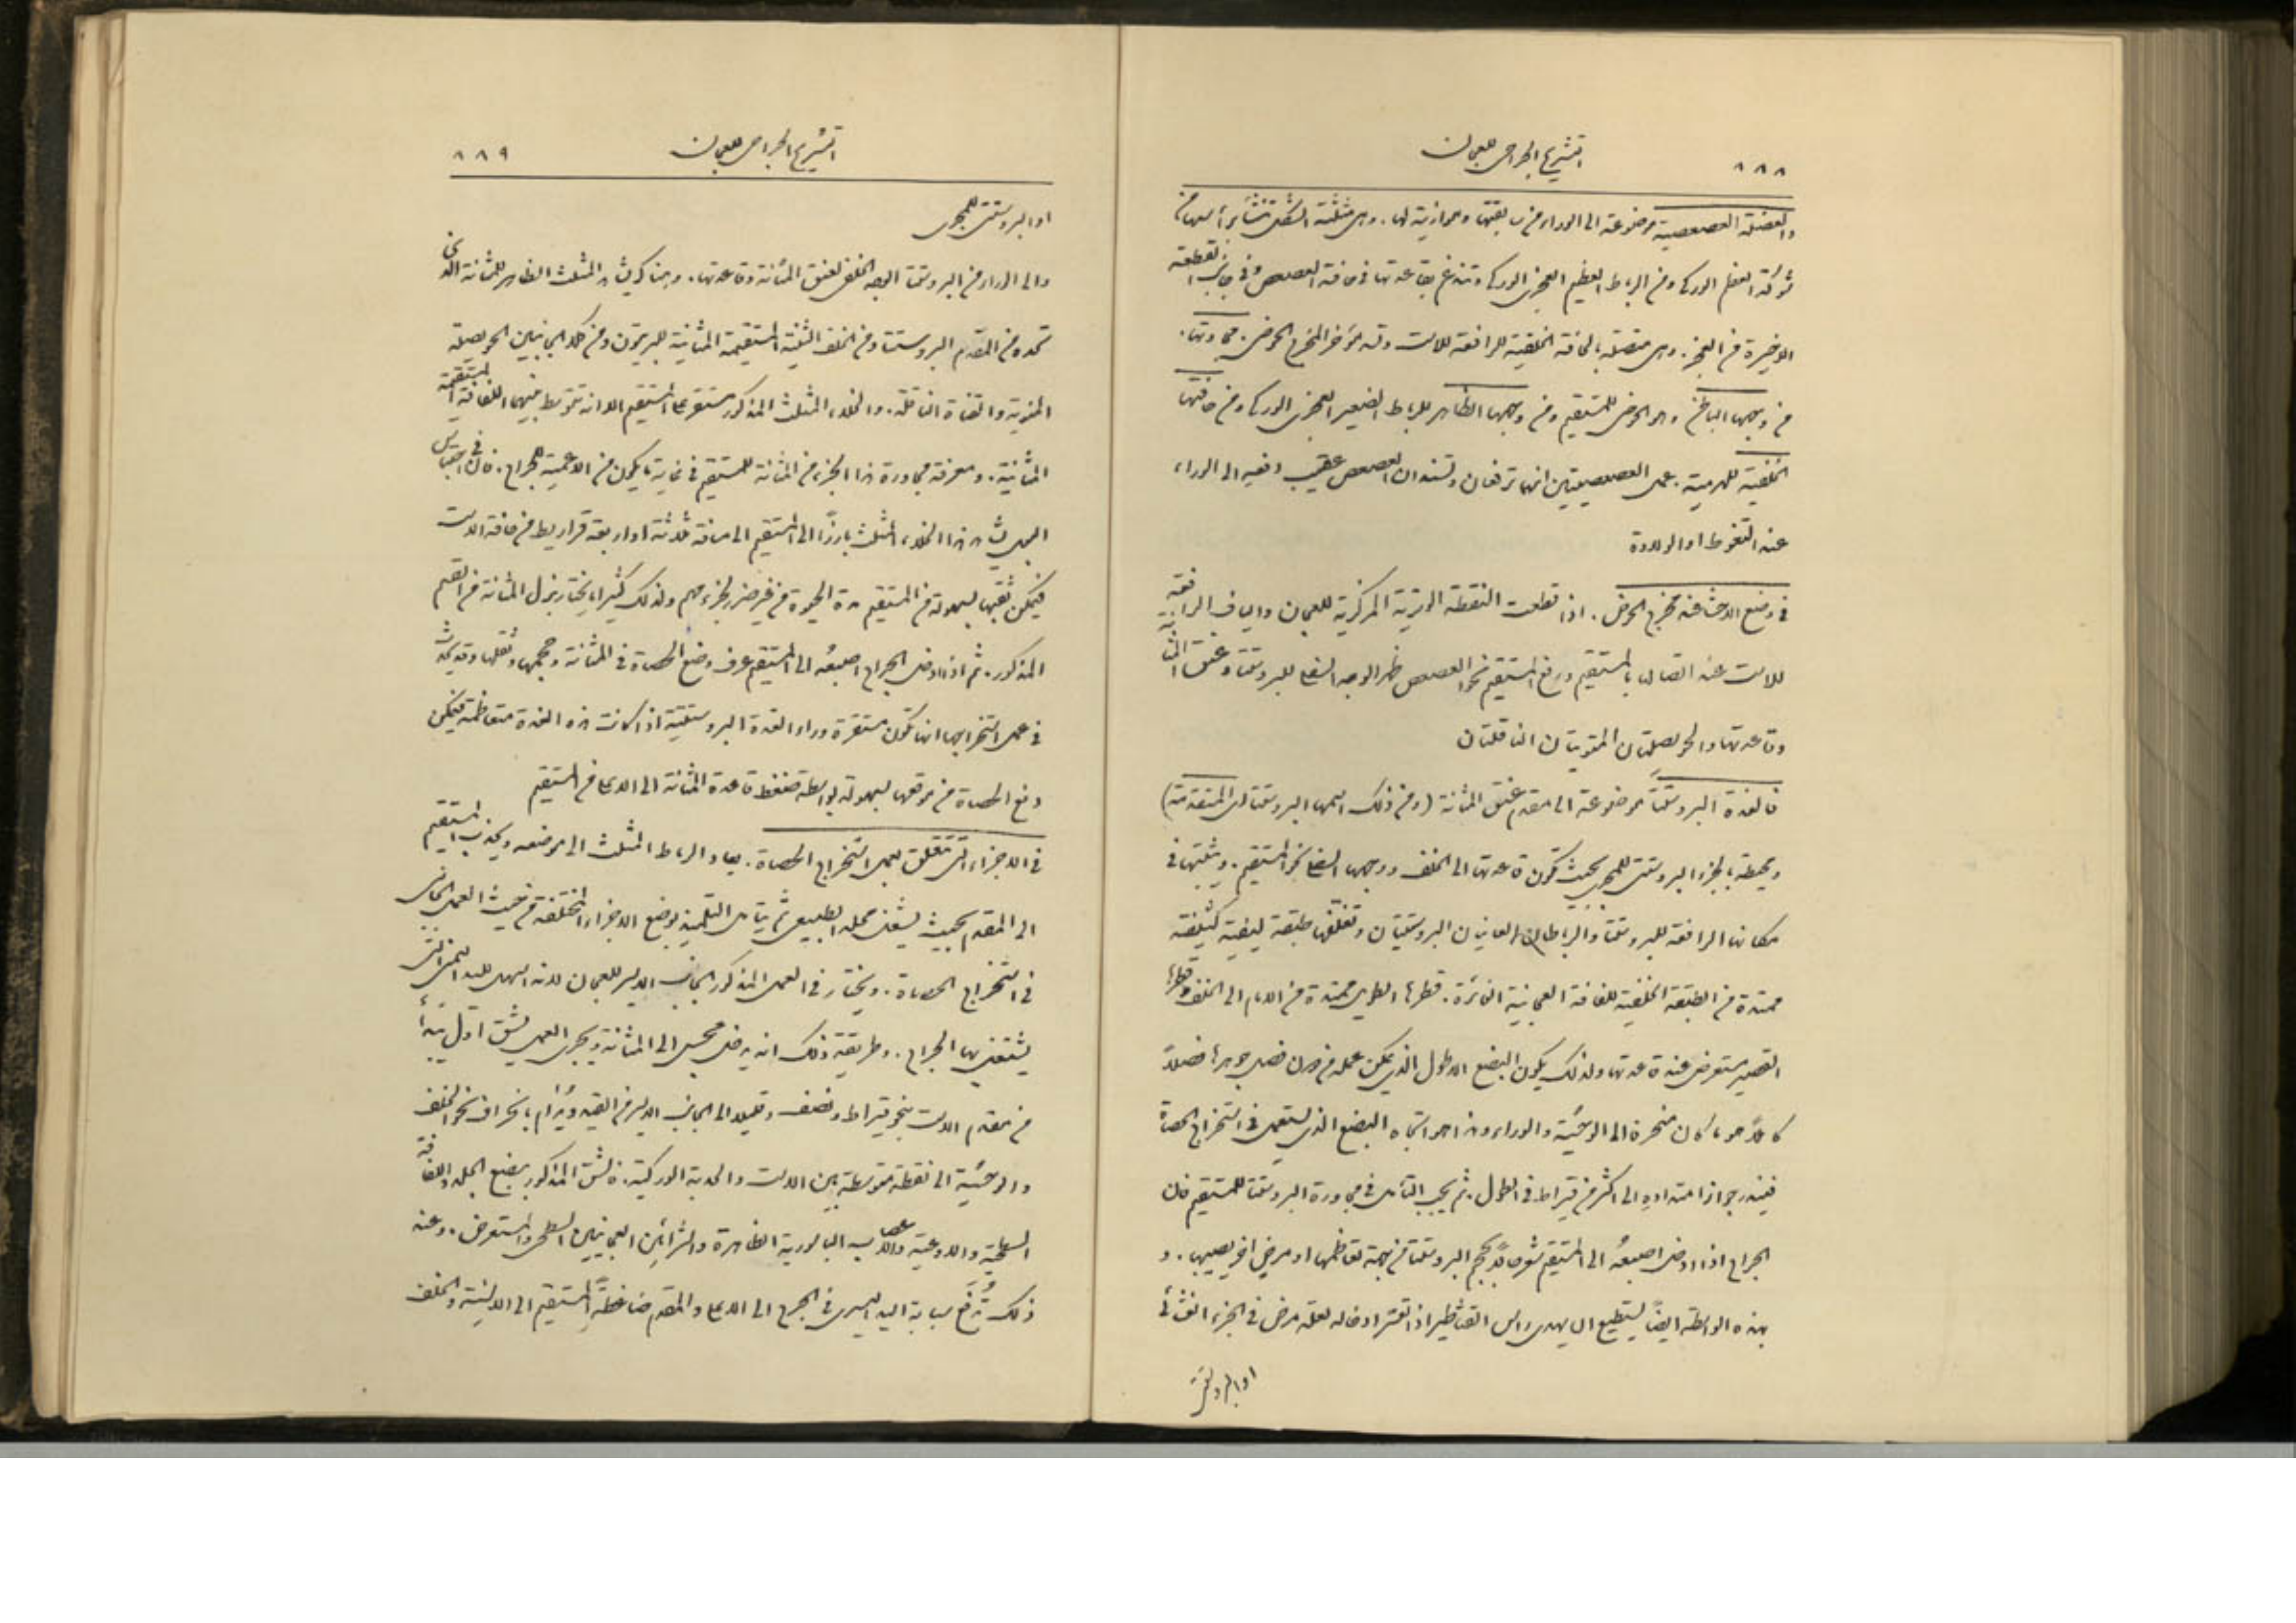 ٨٨٨ التشريح الجراحي للعجان
والعضلة العصعصية موضوعة الى الوراء من سابقتها وموازية لها. وهي مثلثة الشكل تنشأ برأسها من
شوكة العظم الوركي ومن الرباط العظيم العجزي الوركي وتندغم بقاعدتها في حافة العصعص وفي جانب القطعة
الاخيرة من العجز. وهي متصلة بالحافة الخلفية للرافعة للاست وتسد مؤخر المخرج الحوضي. مجاورتها.
من وجهها الباطن وهو الحوضي للمستقيم ومن وجهها الظاهر للرباط الصغير العجزي الوركي ومن حافتها
الخلفية للهرمية. عمل العصعصيتين انهما ترفعان وتسندان العصعص عقيب دفعه الى الوراء
عند التغوط او الولادة
في وضع الاحشاء عند مخرج الحوض. اذا قطعت النقطة الوترية المركزية للعجان والياف الرافعة
للاست عند اتصالها بالمستقيم ورفع المستقيم نحو العصعص ظهر الوجه السفلي للبروستتا وعنق المثانة
وقاعدتها والحويصلتان المنويتان الناقلتان
فالغدة البروستتا موضوعة الى مقدم عنق المثانة (ومن ذلك اسمها البروستتا اي المتقدمة)
ومحيطة بالجزء البروستتي للمجرى بحيث تكون قاعدتها الى الخلف ووجهها السفلي نحو المستقيم. ويثبتها في
مكانها الرافعة للبروستتا والرباطان العانيان البروستتيان وتغلفها طبقة ليفية كثيفة
ممتدة من الطبقة الخلفية للفافة العجانية الغائرة. قطرها الطولي ممتدة من الامام الى الخلف وقطرها
القصير مستعرض عند قاعدتها ولذلك يكون البضع الاطول الذي يمكن عمله من دون فصل جوهرها فصلاً
كاملاً هو ما كان منحرفة الى الوحشية والوراء وهذا هو اتجاه البضع الذي يستعمل في استخراج الحصاة
فيندر جوازا امتداده الى اكثر من قيراط في الطول. ثم يجب التأمل في مجاورة البروستتا للمستقيم فان
الجراح اذا ادخل اصبعه الى المستقيم شعر حالاً بحجم البروستتا من جهة تعاظمها او مرض اخر يصيبها. و
بهذه الواسطة ايضاً يستطيع ان يهدي راس القثاطير اذا تعسر ادخاله لعلة مرض في الجزء الغشائي
او البروستتي
٨٨٩ التشريح الجراحي للعجان
او البروستتي للمجرى
والى الوراء من البروستتا الوجه الخلفي لعنق المثانة وقاعدتها. وهنا كذا يشاهد المثلث الظاهر للمثانة الذي
تحده من المقدم البروستتا ومن الخلف الثنية المستقيمة المثانية للبريتون ومن كلا الجانبين الحويصلة
المنوية والقناة الناقلة. والخلاء المثلث المذكور مستقر على المستقيم الا انه تتوسط بينهما اللفافة المستقيمة
المثانية. ومعرفة مجاورة هذا الجزء من المثانة للمستقيم في غاية ما يكون من الاهمية للجراح. فان في احتباس
البول يشاهد هذا الخلاء المثلث بارزًا الى المستقيم الى مسافة ثلاثة او اربعة قراريط من حافة الاست
فيمكن ثقبها بسهولة من المستقيم مدة الحيوة من غير ضرر لجزء مهم ولذلك كثيرًا ما يختار بزل المثانة من القسم
المذكور. ثم اذا ادخل الجراح اصبعه الى المستقيم عرف وضع الحصاة في المثانة وحجمها وثقلها وقد يحدث
في عمل استخراجها انها تكون مستقرة وراء الغدة البروستتية اذا كانت هذه الغدة متعاظمة فيمكن
دفع الحصاة من موقعها بسهولة بواسطة ضغط قاعدة المثانة الى الاعلى من المستقيم
في الاجزاء التي تتعلق بعمل استخراج الحصاة. يعاد الرباط المثلث الى موضعه ويجذب المستقيم
الى المقدم بحيث يشغل محله الطبيعي ثم يتأمل التلميذ بوضع الاجزاء المختلفة من حيث العمل الجانبي
في استخراج الحصاة. ويختار في العمل المذكور الجانب الايسر للعجان لانه اسهل لليد اليمنى التي
يشتغل بها الجراح. وطريقة ذلك انه يدخل مجس الى المثانة ويجرى العمل بشق اول يبتدأ
من مقدم الاست بنحو قيراط ونصف وقليلا الى الجانب الايسر من القيد ويُدام بانحراف نحو الخلف
والوحشية الى نقطة متوسطة بين الاست والحدبة الوركية. فالشق المذكور يبضع الجلد واللفافة
السطحية والاوعية والاعصاب الباسورية الظاهرة والشرائين العجانيين السطحي والمستعرض. وعند
ذلك تُرفَع سبابة اليد اليسرى في الجرح الى الاعلى والمقدم ضاغطةً المستقيم الى الانسية والخلف